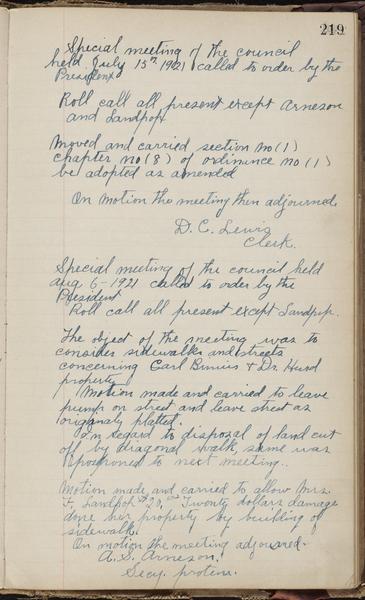 219
Special meeting of the council
held July 15th 1921 called to order by the
President
Roll call all present except Arneson
and Sandpop
Moved and carried section no (1)
chapter no (8) of ordinince no (1)
be adopted as amended
On motion the meeting then adjourned
D. C. Lewis
Clerk.
Special meeting of the council held
aug 6 - 1921 called to order by the
President
Roll call all present except Sandpop.
The object of the meeting was to
consider sidewalks and streets
concerning Carl + Dr. Hurd
property
Motion made and carried to leave
pump on street and leave street as
originaly platted.
In regard to disposal of land cut
off by diagonal walk, same was
postponed to next meeting..
Motion made and carried to allow Mrs.
Sandpop $20, Twenty dollars damage
done her property by building of
sidewalk.
On motion the meeting adjourned.
A. S. Arneson.
Secy. protem.